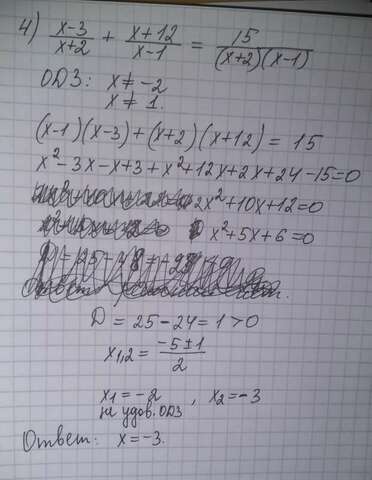 4) (x-3)/(x+2) + (x+12)/(x-1) = 15/((x+2)(x-1))
ОДЗ: x≠-2
x≠1.
(x-1)(x-3)+(x+2)(x+12)=15
x²-3x-x+3+x²+12x+2x+24-15=0
2x²+10x+12=0
x²+5x+6=0
D=25-24=1>0
x1,2=(-5±1)/2
x1=-2, x2=-3
на удов. ОДЗ
Ответ: x=-3.